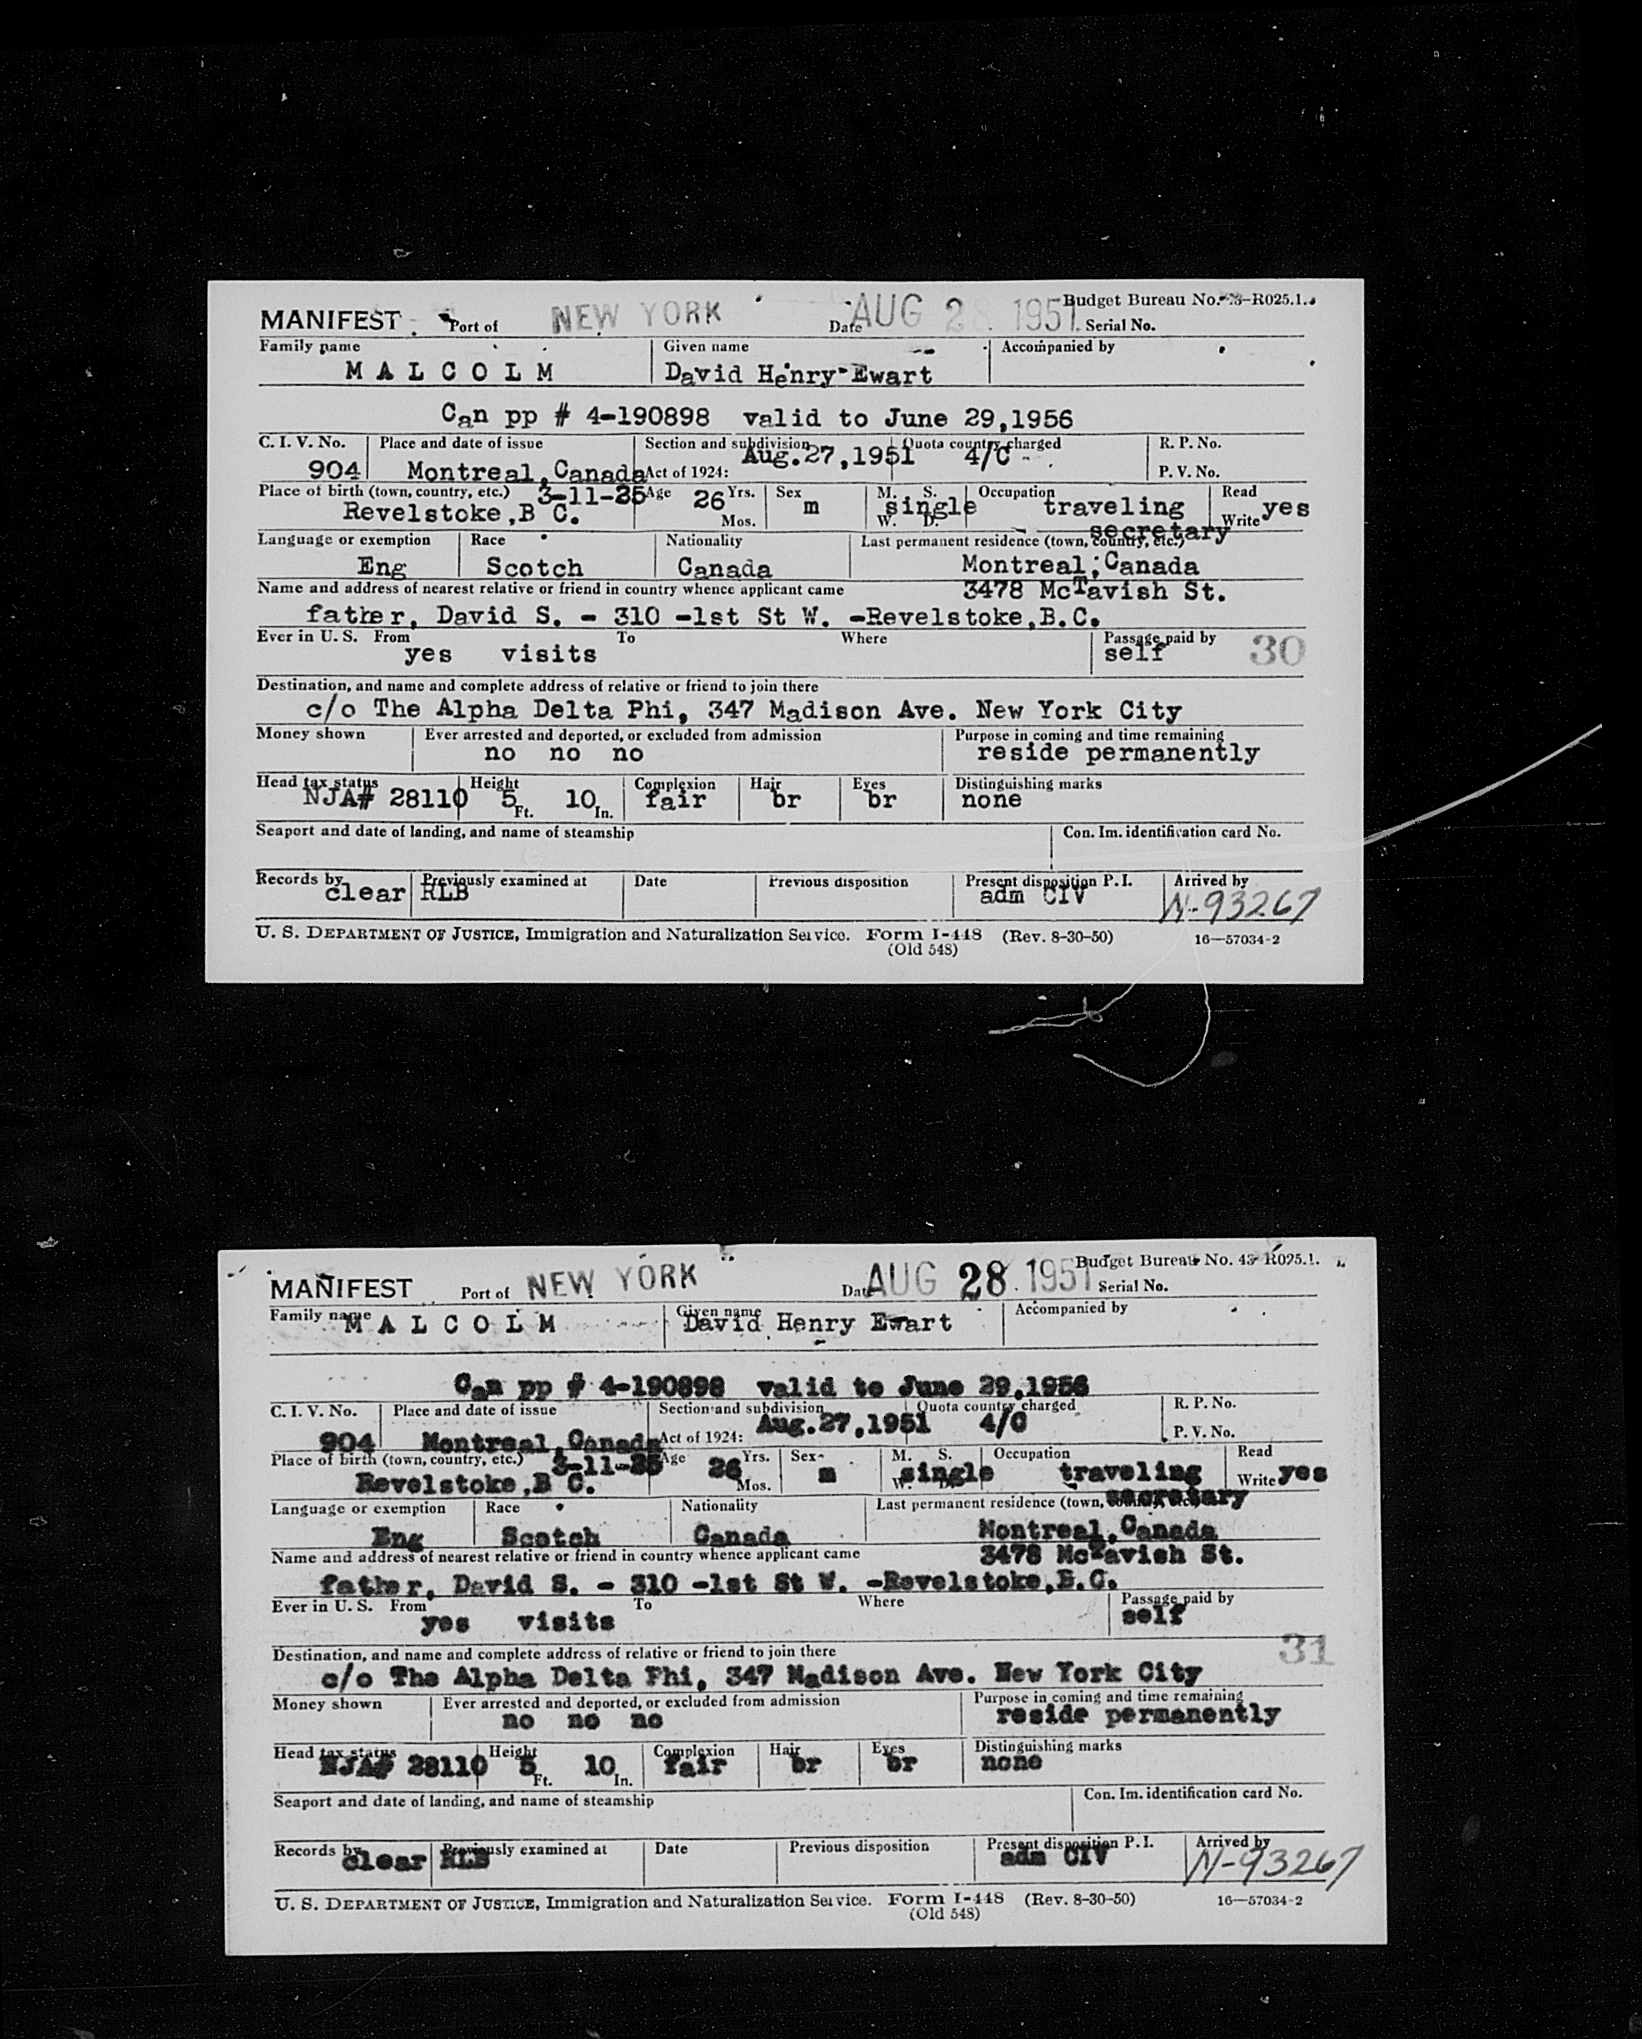 MANIFEST Port of NEW YORK Date AUG 28 1951 Budget Bureau No. 43-R025.1.
Serial No.
Family name Given name Accompanied by
M A L C O L M David Henry Ewart
Can pp # 4-190898 valid to June 29,1956
C. I. V. No. Place and date of issue Section and subdivision Quota country charged R. P. No.
904 Montreal,Canada Act of 1924: Aug.27,1951 4/C P. V. No.
Place of birth (town, country, etc.) 3-11-25 Age 26 Yrs. Sex M. S. Occupation Read
Revelstoke,B C. Mos. m single W. D. traveling Write yes
secretary
Language or exemption Race Nationality Last permanent residence (town, country, etc.)
Eng Scotch Canada Montreal,Canada
Name and address of nearest relative or friend in country whence applicant came 3478 McTavish St.
father, David S. - 310 -1st St W. -Revelstoke,B.C.
Ever in U. S. From To Where Passage paid by
yes visits self 30
Destination, and name and complete address of relative or friend to join there
c/o The Alpha Delta Phi, 347 Madison Ave. New York City
Money shown Ever arrested and deported, or excluded from admission Purpose in coming and time remaining
no no no reside permanently
Head tax status Height Complexion Hair Eyes Distinguishing marks
NJA# 28110 5 Ft. 10 In. fair br br none
Seaport and date of landing, and name of steamship Con. Im. identification card No.
Records by Previously examined at Date Previous disposition Present disposition P. I. Arrived by
clear RLB adm CIV N-93267
U. S. DEPARTMENT OF JUSTICE, Immigration and Naturalization Service. Form I-448 (Rev. 8-30-50) 16—57034-2
(Old 548)
MANIFEST Port of NEW YORK Date AUG 28 1951 Budget Bureau No. 43-R025.1.
Serial No.
Family name Given name Accompanied by
M A L C O L M David Henry Ewart
Can pp # 4-190898 valid to June 29,1956
C. I. V. No. Place and date of issue Section and subdivision Quota country charged R. P. No.
904 Montreal,Canada Act of 1924: Aug.27,1951 4/C P. V. No.
Place of birth (town, country, etc.) 3-11-25 Age 26 Yrs. Sex M. S. Occupation Read
Revelstoke,B C. Mos. m single W. D. traveling Write yes
secretary
Language or exemption Race Nationality Last permanent residence (town, country, etc.)
Eng Scotch Canada Montreal,Canada
Name and address of nearest relative or friend in country whence applicant came 3478 McTavish St.
father, David S. - 310 -1st St W. -Revelstoke,B.C.
Ever in U. S. From To Where Passage paid by
yes visits self
31
Destination, and name and complete address of relative or friend to join there
c/o The Alpha Delta Phi, 347 Madison Ave. New York City
Money shown Ever arrested and deported, or excluded from admission Purpose in coming and time remaining
no no no reside permanently
Head tax status Height Complexion Hair Eyes Distinguishing marks
NJA# 28110 5 Ft. 10 In. fair br br none
Seaport and date of landing, and name of steamship Con. Im. identification card No.
Records by Previously examined at Date Previous disposition Present disposition P. I. Arrived by
clear RLB adm CIV N-93267
U. S. DEPARTMENT OF JUSTICE, Immigration and Naturalization Service. Form I-448 (Rev. 8-30-50) 16—57034-2
(Old 548)